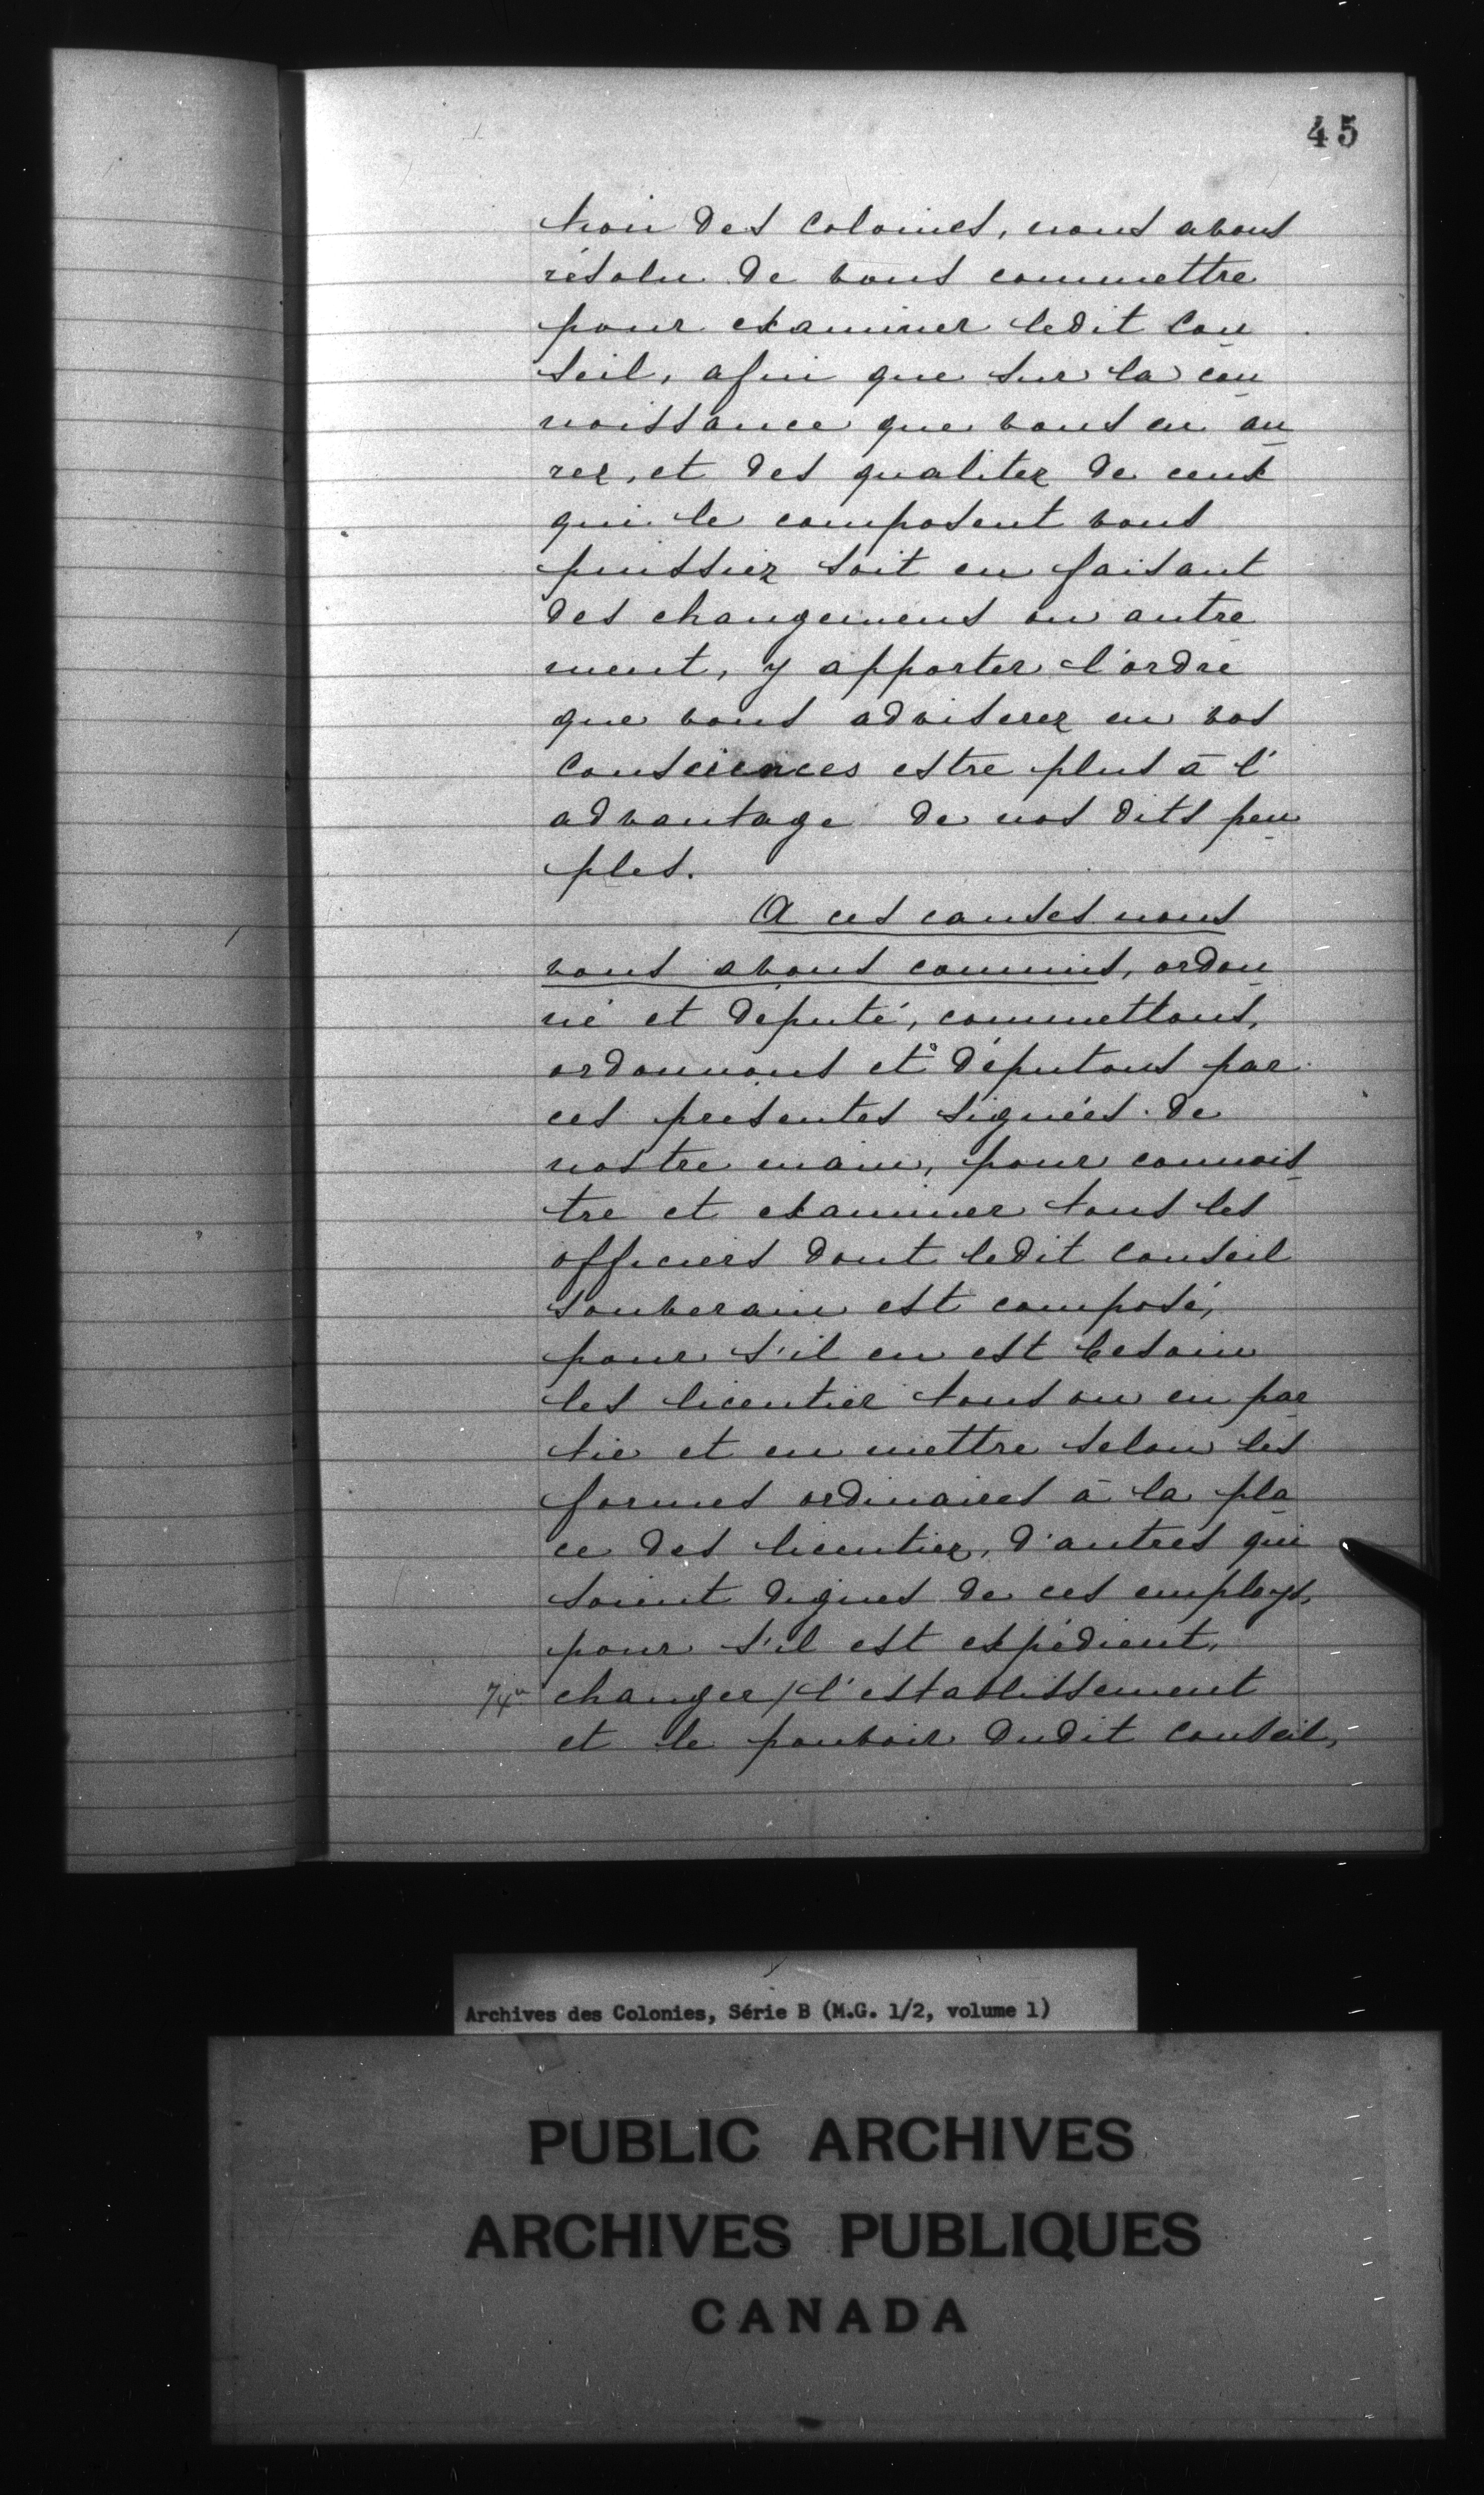 45
tion des Colonies, nous avons
résolu de vous commettre
pour examiner ledit Con
seil, afin que sur la con
noissance que vous en au
rez, et des qualitez de ceux
qui le composent vous
puissiez soit en faisant
des changemens ou autre
ment, y apporter l'ordre
que vous adviserez en vos
Consciences estre plus à l'
advantage de nos dits peu
ples.
A ces causes nous
vous avons commis, ordon
né et député, commettons,
ordonnons et députons par
ces presentes signées de
nostre main, pour connois
tre et examiner tous les
officiers dont ledit Conseil
souverain est composé,
pour s'il en est besoin
les licentier tous ou en par
tie et en mettre selon les
formes ordinaires à la pla
ce des licentiez, d'autres qui
soient dignes de ces employs,
pour s'il est expédient,
changer / l'establissement
et le pouvoir dudit conseil,
Archives des Colonies, Série B (M.G. 1/2, volume 1)
PUBLIC ARCHIVES
ARCHIVES PUBLIQUES
CANADA